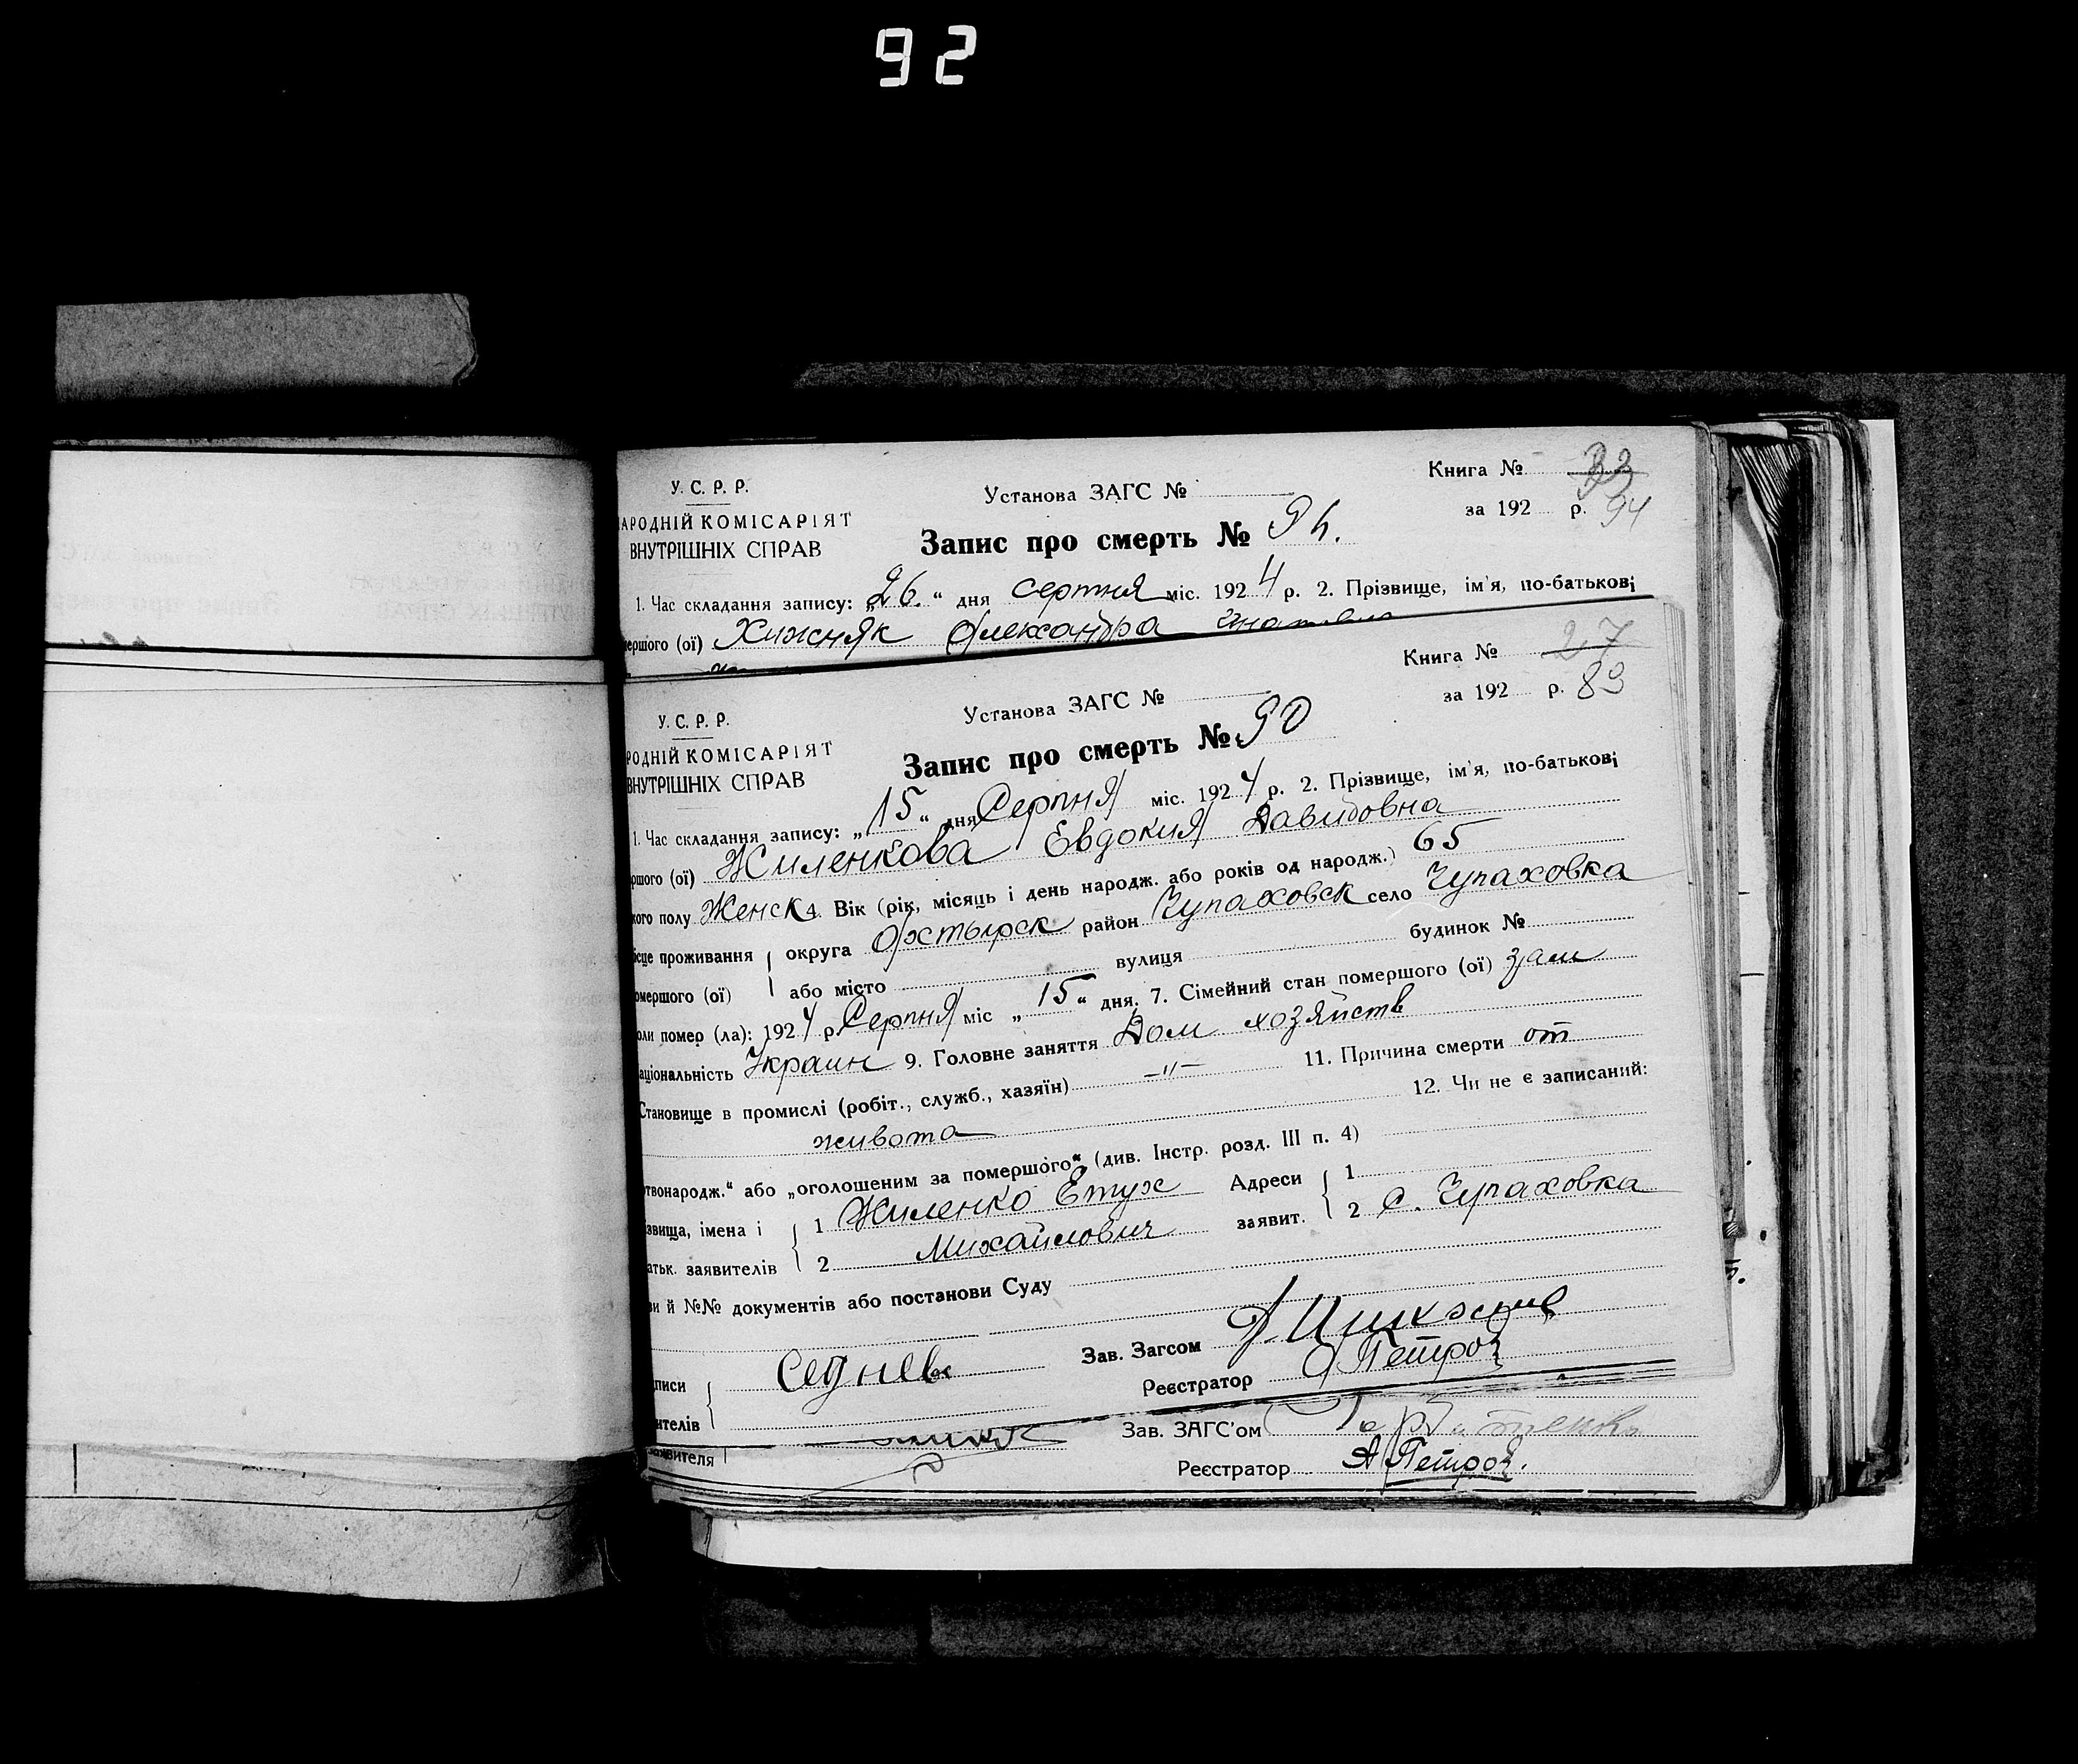 92
Книга № 33
У. С. Р. Р.
Установа ЗАГС №
за 192 р. 94
НАРОДНІЙ КОМІСАРІЯТ
ВНУТРІШНІХ СПРАВ
Запис про смерть № 94.
1. Час складання запису: „26.“ дня серпня міс. 1924 р. 2. Прізвище, ім'я, по-батькові
мершого (ої) Хижняк Олександра
Книга № 27
У. С. Р. Р.
Установа ЗАГС №
за 192 р. 89
РОДНІЙ КОМІСАРІЯТ
ВНУТРІШНІХ СПРАВ
Запис про смерть № 90
1. Час складання запису: „15“ дня Серпня міс. 1924 р. 2. Прізвище, ім'я, по-батькові
ршого (ої) Жиленкова Евдокия Давидовна
кого полу Женск 4. Вік (рік, місяць і день народж. або років од народж.) 65
ісце проживання округа Охтырск район Чупаховск село Чупаховка
омершого (ої) або місто вулиця будинок №
оли помер (ла): 1924 р. Серпня міс „15“ дня. 7. Сімейний стан помершого (ої) зам
аціональність Украин 9. Головне заняття Дом хозяйств
Становище в промислі (робіт., служб., хазяїн) —"— 11. Причина смерти от
живота 12. Чи не є записаний:
твонародж.“ або „оголошеним за помершого“ (див. Інстр. розд. III п. 4)
звища, імена і 1 Жиленко Етух Адреси 1
атьк. заявителів 2 Михайлович заявит. 2 с. Чупаховка
ви й №№ документів або постанови Суду
Зав. Загсом
дписи Седнев
Реєстратор А Петров
ителів
Зав. ЗАГС'ом
заявителя
Реєстратор А Петров.